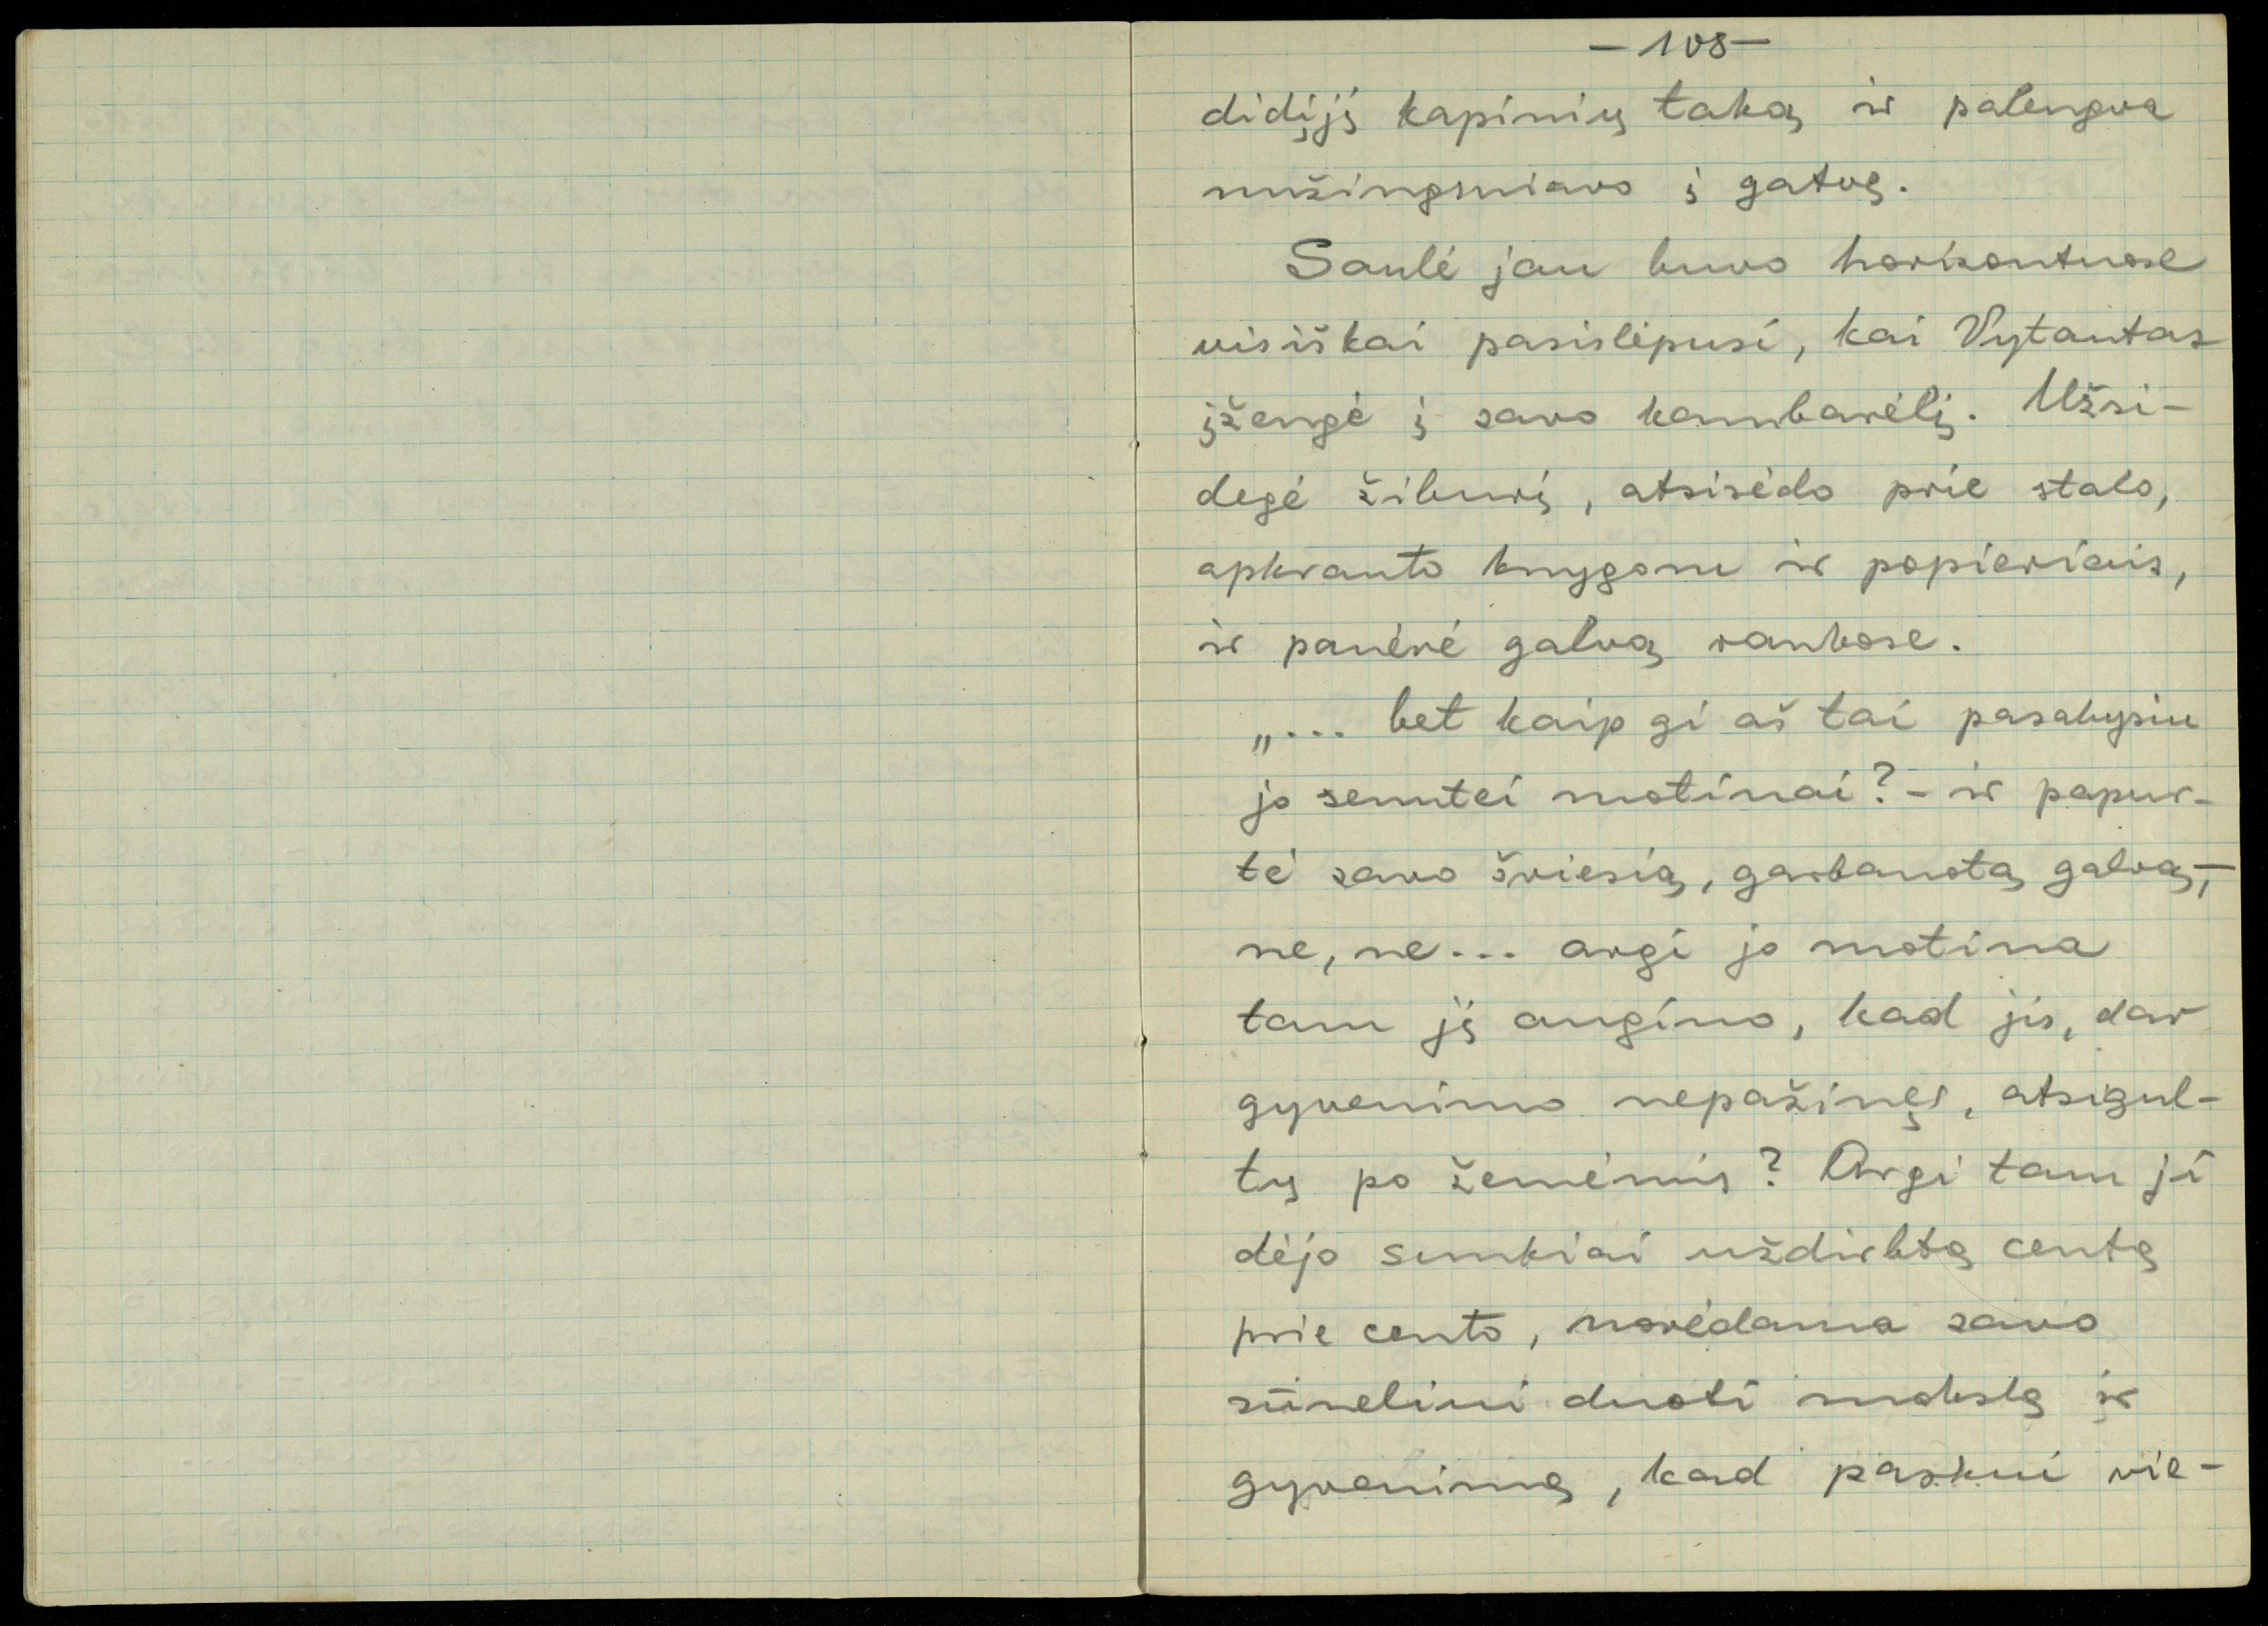 — 108 —
didįjį kapinių taką ir palengva
nužingsniavo į gatvę.
Saulė jau buvo horisontuose
visiškai pasislėpusi, kai Vytautas
įžengė į savo kambarėlį. Užsi-
degė žiburį, atsisėdo prie stalo,
apkrauto knygom ir popieriais,
ir panėrė galvą rankose.
„... bet kaip gi aš tai pasakysiu
jo senutei motinai? - ir papur-
tė savo šviesią, garbanotą galvą, —
ne, ne... argi jo motina
tam jį augino, kad jis, dar
gyvenimo nepažinęs, atsigul-
tų po žemėmis? Argi tam ji
dėjo sunkiai uždirbtą centą
prie cento, norėdama savo
sūneliui duoti mokslą ir
gyvenimą, kad paskui vie-